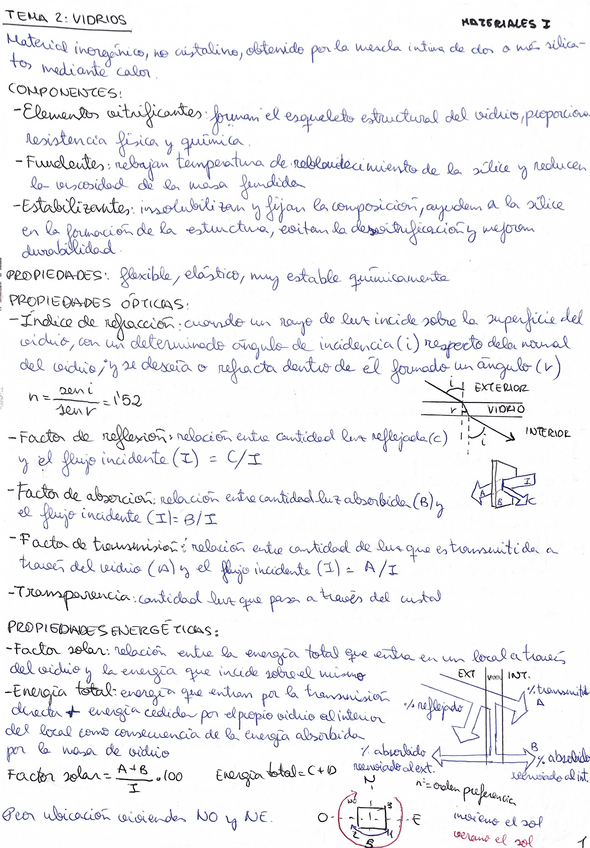 TEMA 2: VIDRIOS
MATERIALES I
Material inorgánico, no cristalino, obtenido por la mezcla íntima de dos o más silica-
tos mediante calor.
COMPONENTES:
-Elementos vitrificantes: forman el esqueleto estructural del vidrio, proporciona
resistencia física y química.
-Fundentes: rebajan temperatura de reblandecimiento de la sílice y reducen
la viscosidad de la masa fundida
-Estabilizantes: insolubilizan y fijan la composición, ayudan a la sílice
en la formación de la estructura, evitan la desvitrificación y mejoran
durabilidad.
PROPIEDADES: flexible, elástico, muy estable químicamente
PROPIEDADES ÓPTICAS:
-Índice de refracción: cuando un rayo de luz incide sobre la superficie del
vidrio, con un determinado ángulo de incidencia (i) respecto de la normal
del vidrio, y se desvía o refracta dentro de él formado un ángulo (r)
n = sen i / sen r = 1'52
i EXTERIOR
r VIDRIO
i INTERIOR
-Factor de reflexión: relación entre cantidad luz reflejada (C)
y el flujo incidente (I) = C/I
A B I C
-Factor de absorción: relación entre cantidad luz absorbida (B) y
el flujo incidente (I) = B/I
-Factor de transmisión: relación entre cantidad de luz que es transmitida a
través del vidrio (A) y el flujo incidente (I) = A/I
-Transparencia: cantidad luz que pasa a través del cristal
PROPIEDADES ENERGÉTICAS:
-Factor solar: relación entre la energía total que entra en un local a través
del vidrio y la energía que incide sobre el mismo
-Energía total: energía que entran por la transmisión
directa + energía cedida por el propio vidrio al interior
del local como consecuencia de la energía absorbida
por la masa de vidrio
EXT INT.
% reflejado
% transmitido
A
B
% absorbido
reenviado al ext.
% absorbido
reenviado al int.
Factor solar = A+B / I . 100
Energía total = C + D
Peor ubicación viviendas NO y NE.
N
O
E
S
nº = orden preferencia
invierno el sol
verano el sol
1